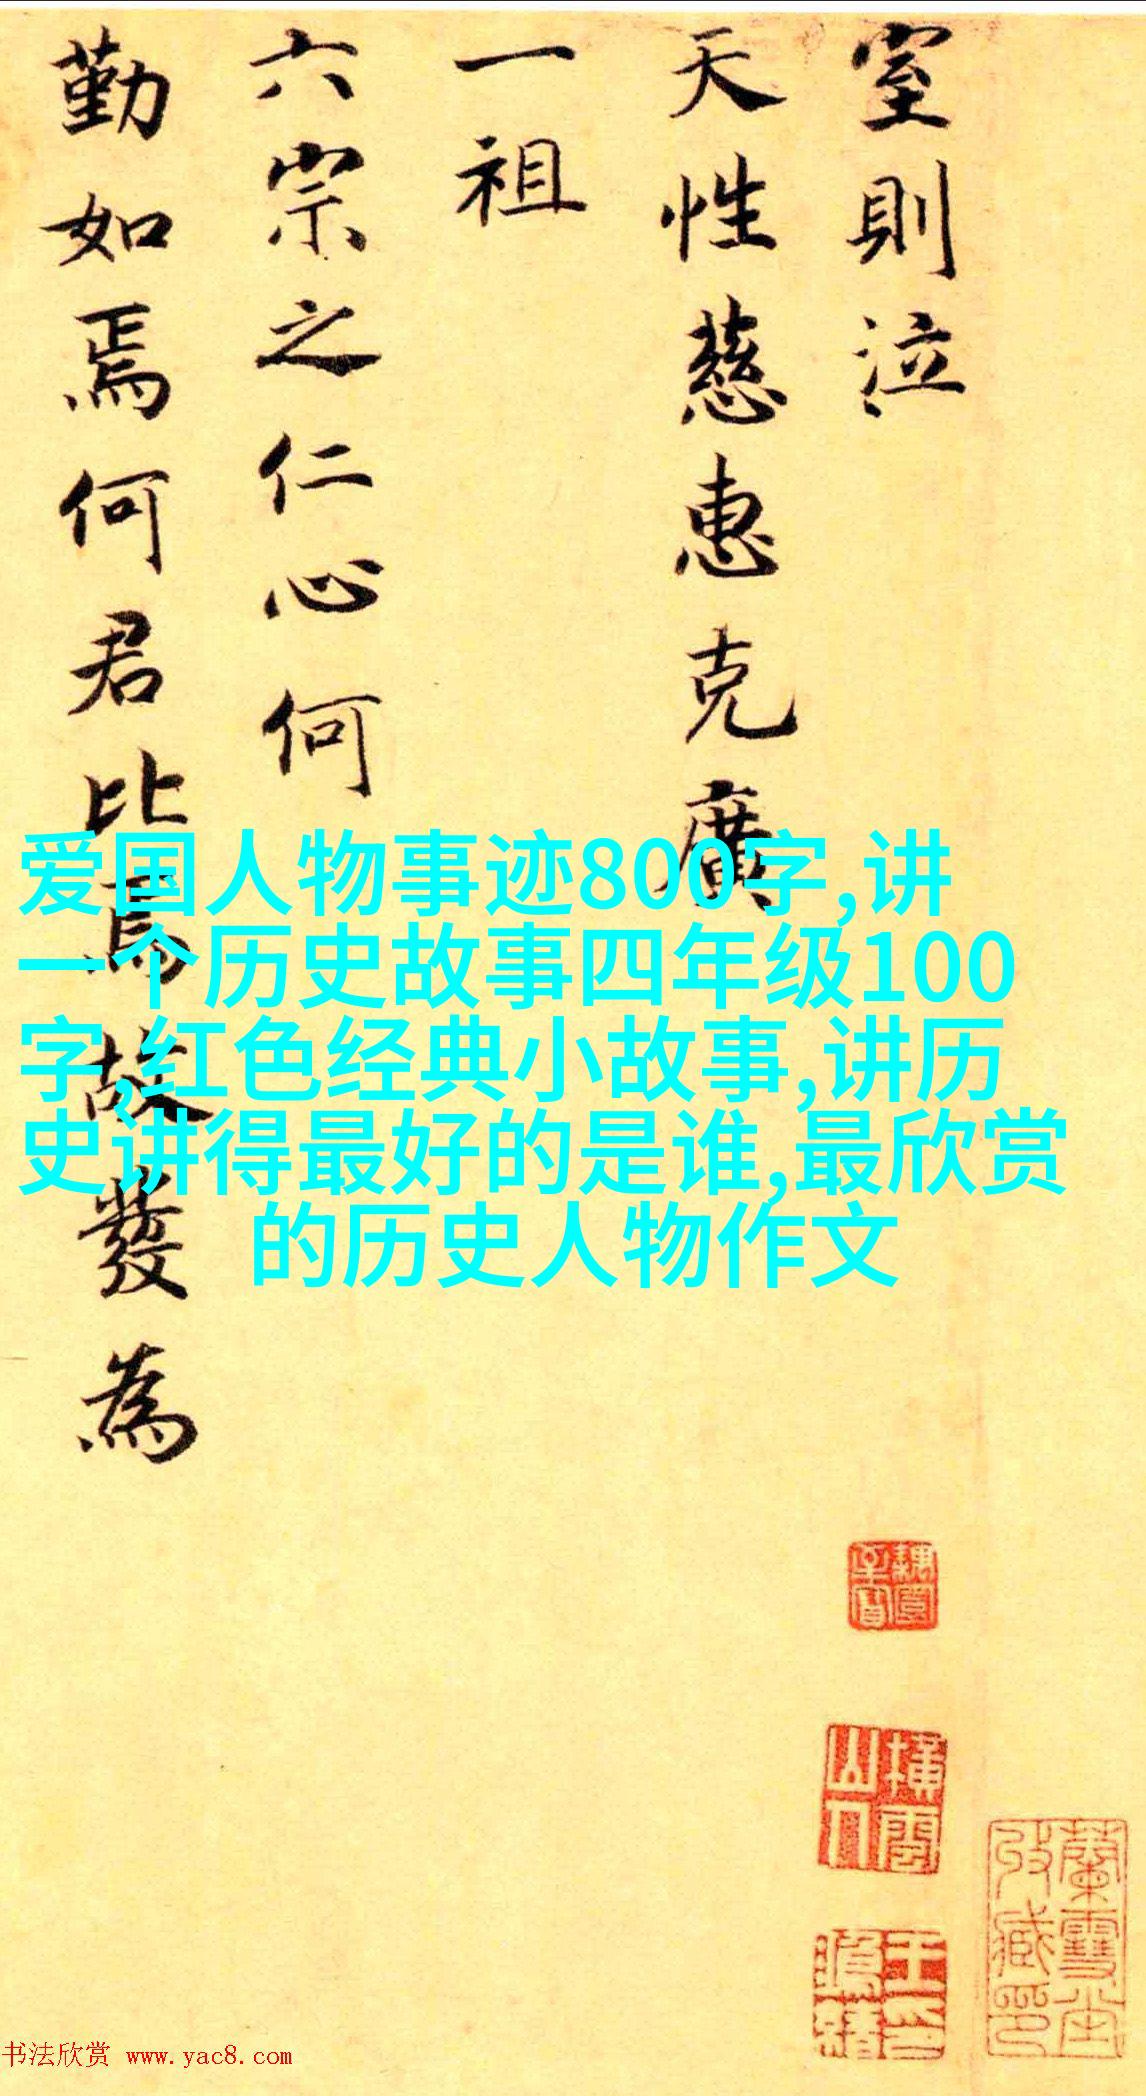 室則泣
天性慈惠克廣
一祖
六宗之仁心何
勤如焉何君比焉故發為
爱国人物事迹800字,讲
一个历史故事四年级100
字,红色经典小故事,讲历
史讲得最好的是谁,最欣赏
的历史人物作文
書法欣赏 www.yac8.com